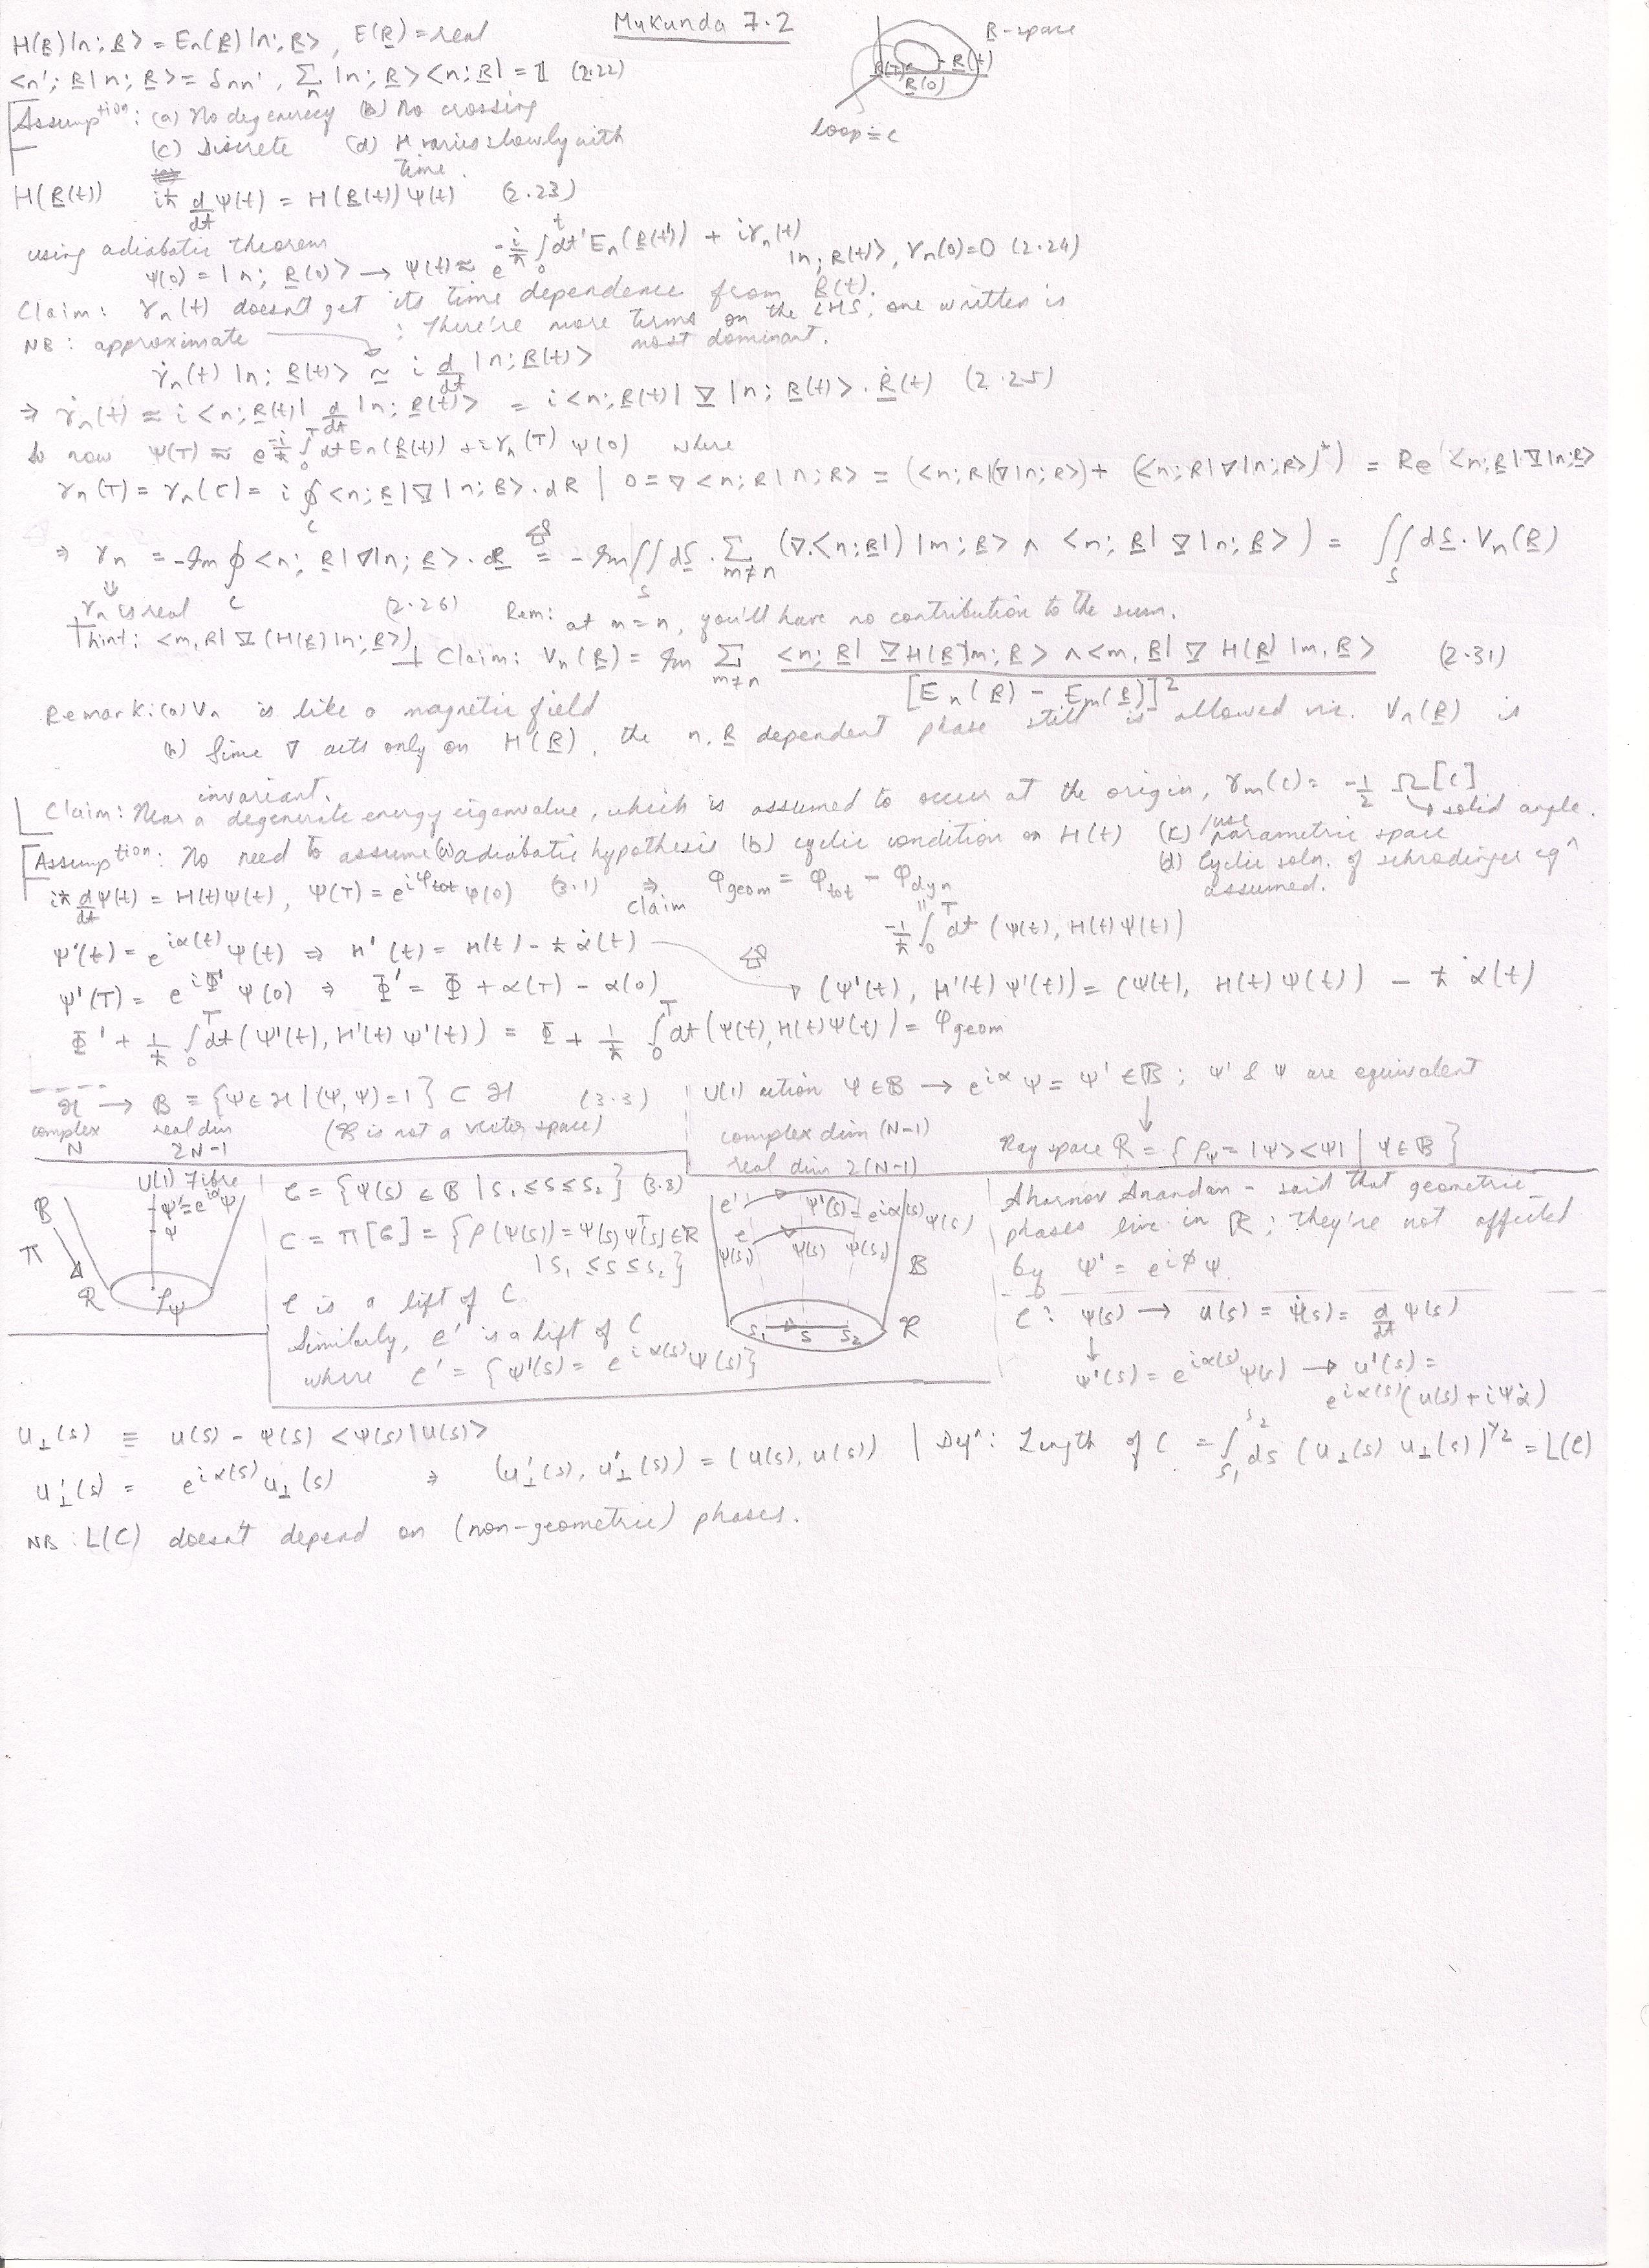 Mukunda 7.2
H(R)|n;R> = En(R)|n;R>, E(R) = real
R-space
<n';R|n;R> = δnn', Σn |n;R><n;R| = 𝟙 (2.22)
R(T) R(t)
R(0)
loop = C
Assumption: (a) No degeneracy (b) No crossing
(c) Discrete (d) H varies slowly with
time.
H(R(t)) iħ d/dt ψ(t) = H(R(t))ψ(t) (2.23)
using adiabatic theorem
ψ(0) = |n; R(0)> → ψ(t) ≈ e^{-i/ħ ∫0^t dt' En(R(t')) + iγn(t)} |n; R(t)>, γn(0)=0 (2.24)
Claim: γn(t) doesn't get its time dependence from R(t).
NB: approximate : There're more terms on the LHS, one written is
most dominant.
γ̇n(t) |n; R(t)> ≃ i d/dt |n; R(t)>
⇒ γ̇n(t) ≈ i <n;R(t)| d/dt |n;R(t)> = i<n;R(t)| ∇ |n; R(t)>. Ṙ(t) (2.25)
So now ψ(T) ≈ e^{-i/ħ ∫0^T dt En(R(t)) + iγn(T)} ψ(0) where
γn(T) = γn(C) = i ∮C <n;R|∇|n;R>.dR | 0 = ∇<n;R|n;R> = (<n;R|(∇|n;R>) + (<n;R|∇|n;R>)*) = Re(<n;R|∇|n;R>
⇒ γn = -Im ∮C <n; R|∇|n; R>. dR = -Im ∬S dS. Σm≠n (∇.<n;R|) |m;R> ∧ <n; R| ∇|n;R>) = ∬S dS.Vn(R)
γn is real (2.26) Rem: at m=n, you'll have no contribution to the sum.
hint: <m,R| ∇(H(R)|n;R>) Claim: Vn(R) = Im Σm≠n <n; R| ∇H(R)|m;R> ∧ <m,R| ∇ H(R) |m,R> / [En(R) - Em(R)]² (2.31)
Remark: (a) Vn is like a magnetic field
(b) Since ∇ acts only on H(R), the n,R dependent phase still is allowed viz. Vn(R) is
invariant.
Claim: Near a degenerate energy eigenvalue, which is assumed to occur at the origin, γm(C) = -1/2 Ω[C]
solid angle.
Assumption: No need to assume (a) adiabatic hypothesis (b) cyclic condition on H(t) (c) use parametric space
(d) Cyclic soln. of schrodinger eqn
assumed.
iħ d/dt ψ(t) = H(t)ψ(t), ψ(T) = e^{iφtot} ψ(0) (3.1) ⇒ claim φgeom = φtot - φdyn
-1/ħ ∫0^T dt (ψ(t), H(t)ψ(t))
ψ'(t) = e^{iα(t)} ψ(t) ⇒ H'(t) = H(t) - ħ α̇(t)
ψ'(T) = e^{iΦ'} ψ(0) ⇒ Φ' = Φ + α(T) - α(0) (ψ'(t), H'(t) ψ'(t)) = (ψ(t), H(t)ψ(t)) - ħ α̇(t)
Φ' + 1/ħ ∫0^T dt(ψ'(t), H'(t)ψ'(t)) = Φ + 1/ħ ∫0^T dt(ψ(t), H(t)ψ(t)) = φgeom
ℋ → B = {ψ∈ℋ|(ψ,ψ)=1} ⊂ ℋ (3.3)
complex N real dim 2N-1 (B is not a vector space)
U(1) action ψ∈B → e^{iα} ψ = ψ' ∈ B; ψ' & ψ are equivalent
complex dim (N-1)
real dim 2(N-1)
Ray space R = {ρψ = |ψ><ψ| | ψ∈B}
U(1) Fibre
ψ' = e^{iα}ψ
ψ
B
π
R
ρψ
C = {ψ(s) ∈ B | s1 ≤ s ≤ s2} (3.8)
C = π[C] = {ρ(ψ(s)) = ψ(s)ψ†(s) ∈ R
| s1 ≤ s ≤ s2}
C is a lift of C
Similarly, C' is a lift of C
where C' = {ψ'(s) = e^{iα(s)} ψ(s)}
C' ψ'(s) = e^{iα(s)} ψ(s)
C
ψ(s1) ψ(s) ψ(s2)
B
s1 s s2 R
Aharnov Anandan - said that geometric
phases live in R; they're not affected
by ψ' = e^{iφ} ψ.
C: ψ(s) → u(s) = ψ̇(s) = d/dt ψ(s)
ψ'(s) = e^{iα(s)} ψ(s) → u'(s) =
e^{iα(s)}(u(s) + iψα̇)
u⊥(s) ≡ u(s) - ψ(s) <ψ(s)|u(s)>
Defn: Length of C = ∫s1^s2 ds (u⊥(s) u⊥(s))^{1/2} = L(C)
u'⊥(s) = e^{iα(s)} u⊥(s) ⇒ (u'⊥(s), u'⊥(s)) = (u(s), u(s))
NB: L(C) doesn't depend on (non-geometric) phases.